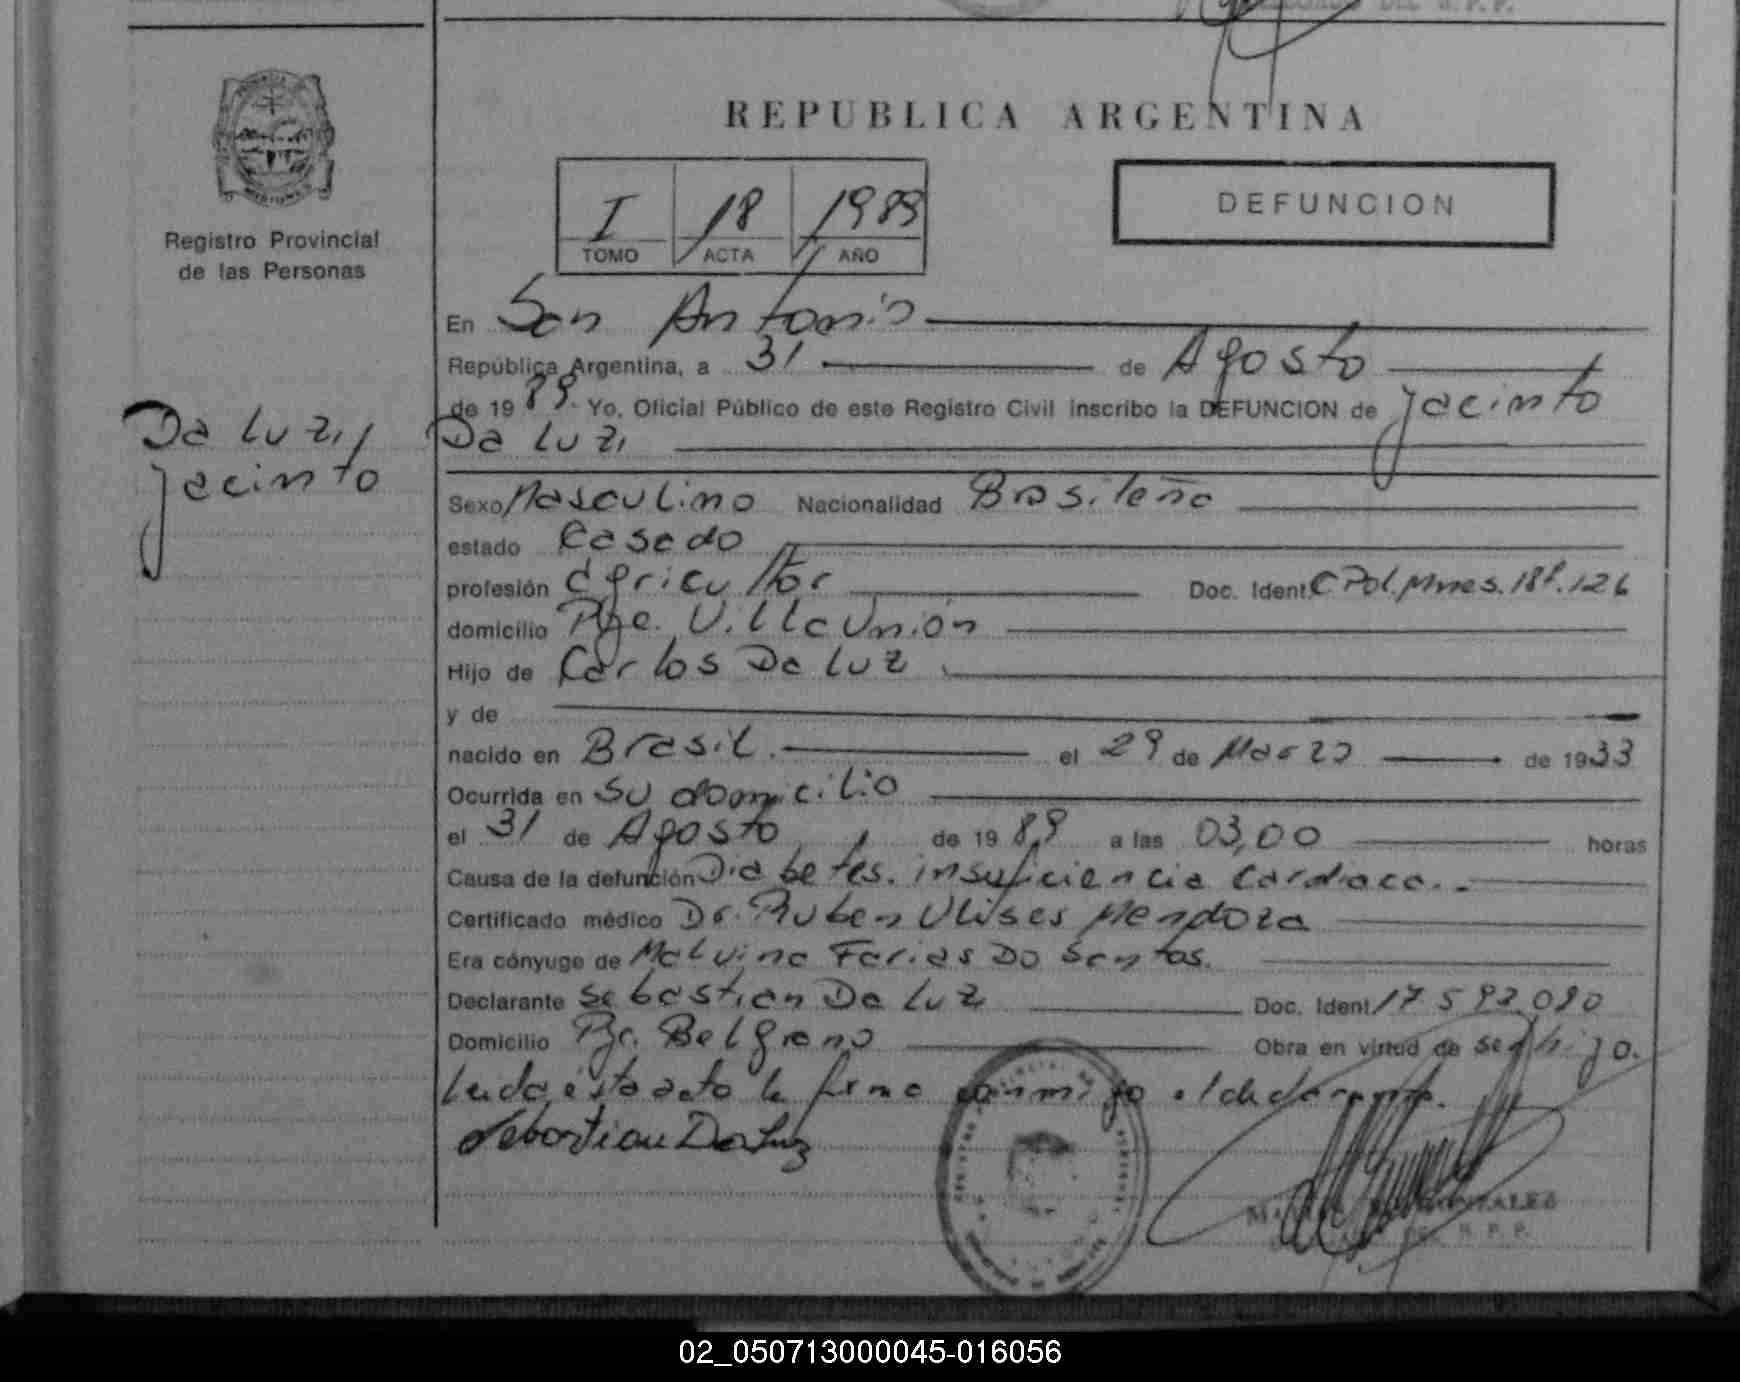 REPUBLICA ARGENTINA
I 18 1989
TOMO ACTA AÑO
DEFUNCION
Registro Provincial
de las Personas
Da Luz,
Jacinto
En San Antonio
República Argentina, a 31 de Agosto
de 1989. Yo, Oficial Público de este Registro Civil inscribo la DEFUNCION de Jacinto
Da Luz,
Sexo Masculino Nacionalidad Brasileña
estado Casado
profesión agricultor Doc. Ident. C Pol. Mnes.
domicilio Pje. Villa Unión
Hijo de Carlos Da Luz
y de
nacido en Brasil. el 29 de Marzo de 1933
Ocurrida en su domicilio
el 31 de Agosto de 1989 a las 03,00 horas
Causa de la defunción Diabetes. insuficiencia Cardiaca..
Certificado médico Dr. Ruben Ulises Mendoza
Era cónyuge de Malvina Farias Do Santos.
Declarante Sebastian Da Luz Doc. Ident. 17.592.090
Domicilio Pje. Belgrano Obra en virtud de ser hijo.
Leida ésta acta la firma conmigo el declarante.
Sebastian Da Luz
02_050713000045-016056